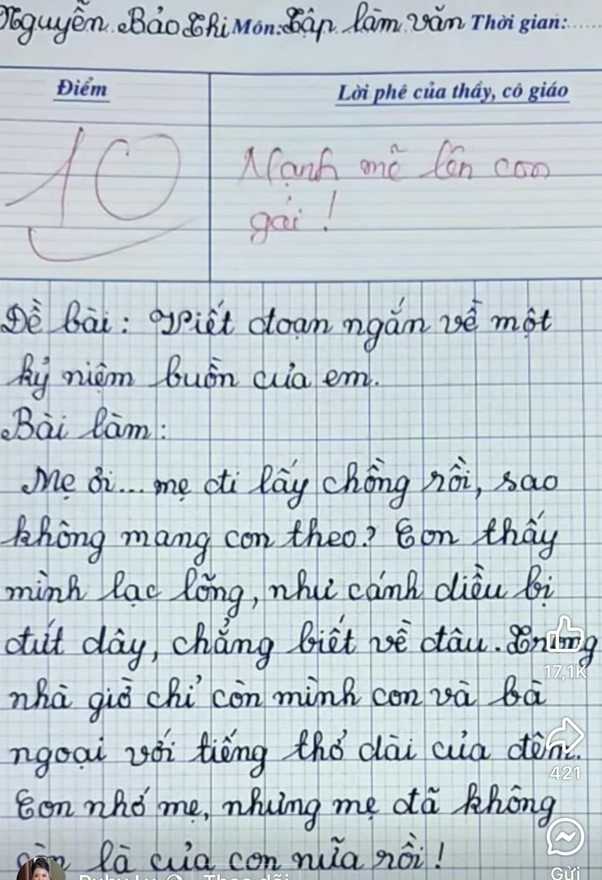 Nguyễn Bảo Thi Môn: Tập làm văn Thời gian:.....
Điểm
Lời phê của thầy, cô giáo
10
Mạnh mẽ lên con
gái!
Đề bài: Viết đoạn ngắn về một
kỷ niệm buồn của em.
Bài làm:
Mẹ ơi... mẹ đi lấy chồng rồi, sao
không mang con theo? Con thấy
mình lạc lõng, như cánh diều bị
đứt dây, chẳng biết về đâu. Trong
nhà giờ chỉ còn mình con và bà
ngoại với tiếng thở dài của đêm.
Con nhớ mẹ, nhưng mẹ đã không
còn là của con nữa rồi!
17,1K
421
Gửi